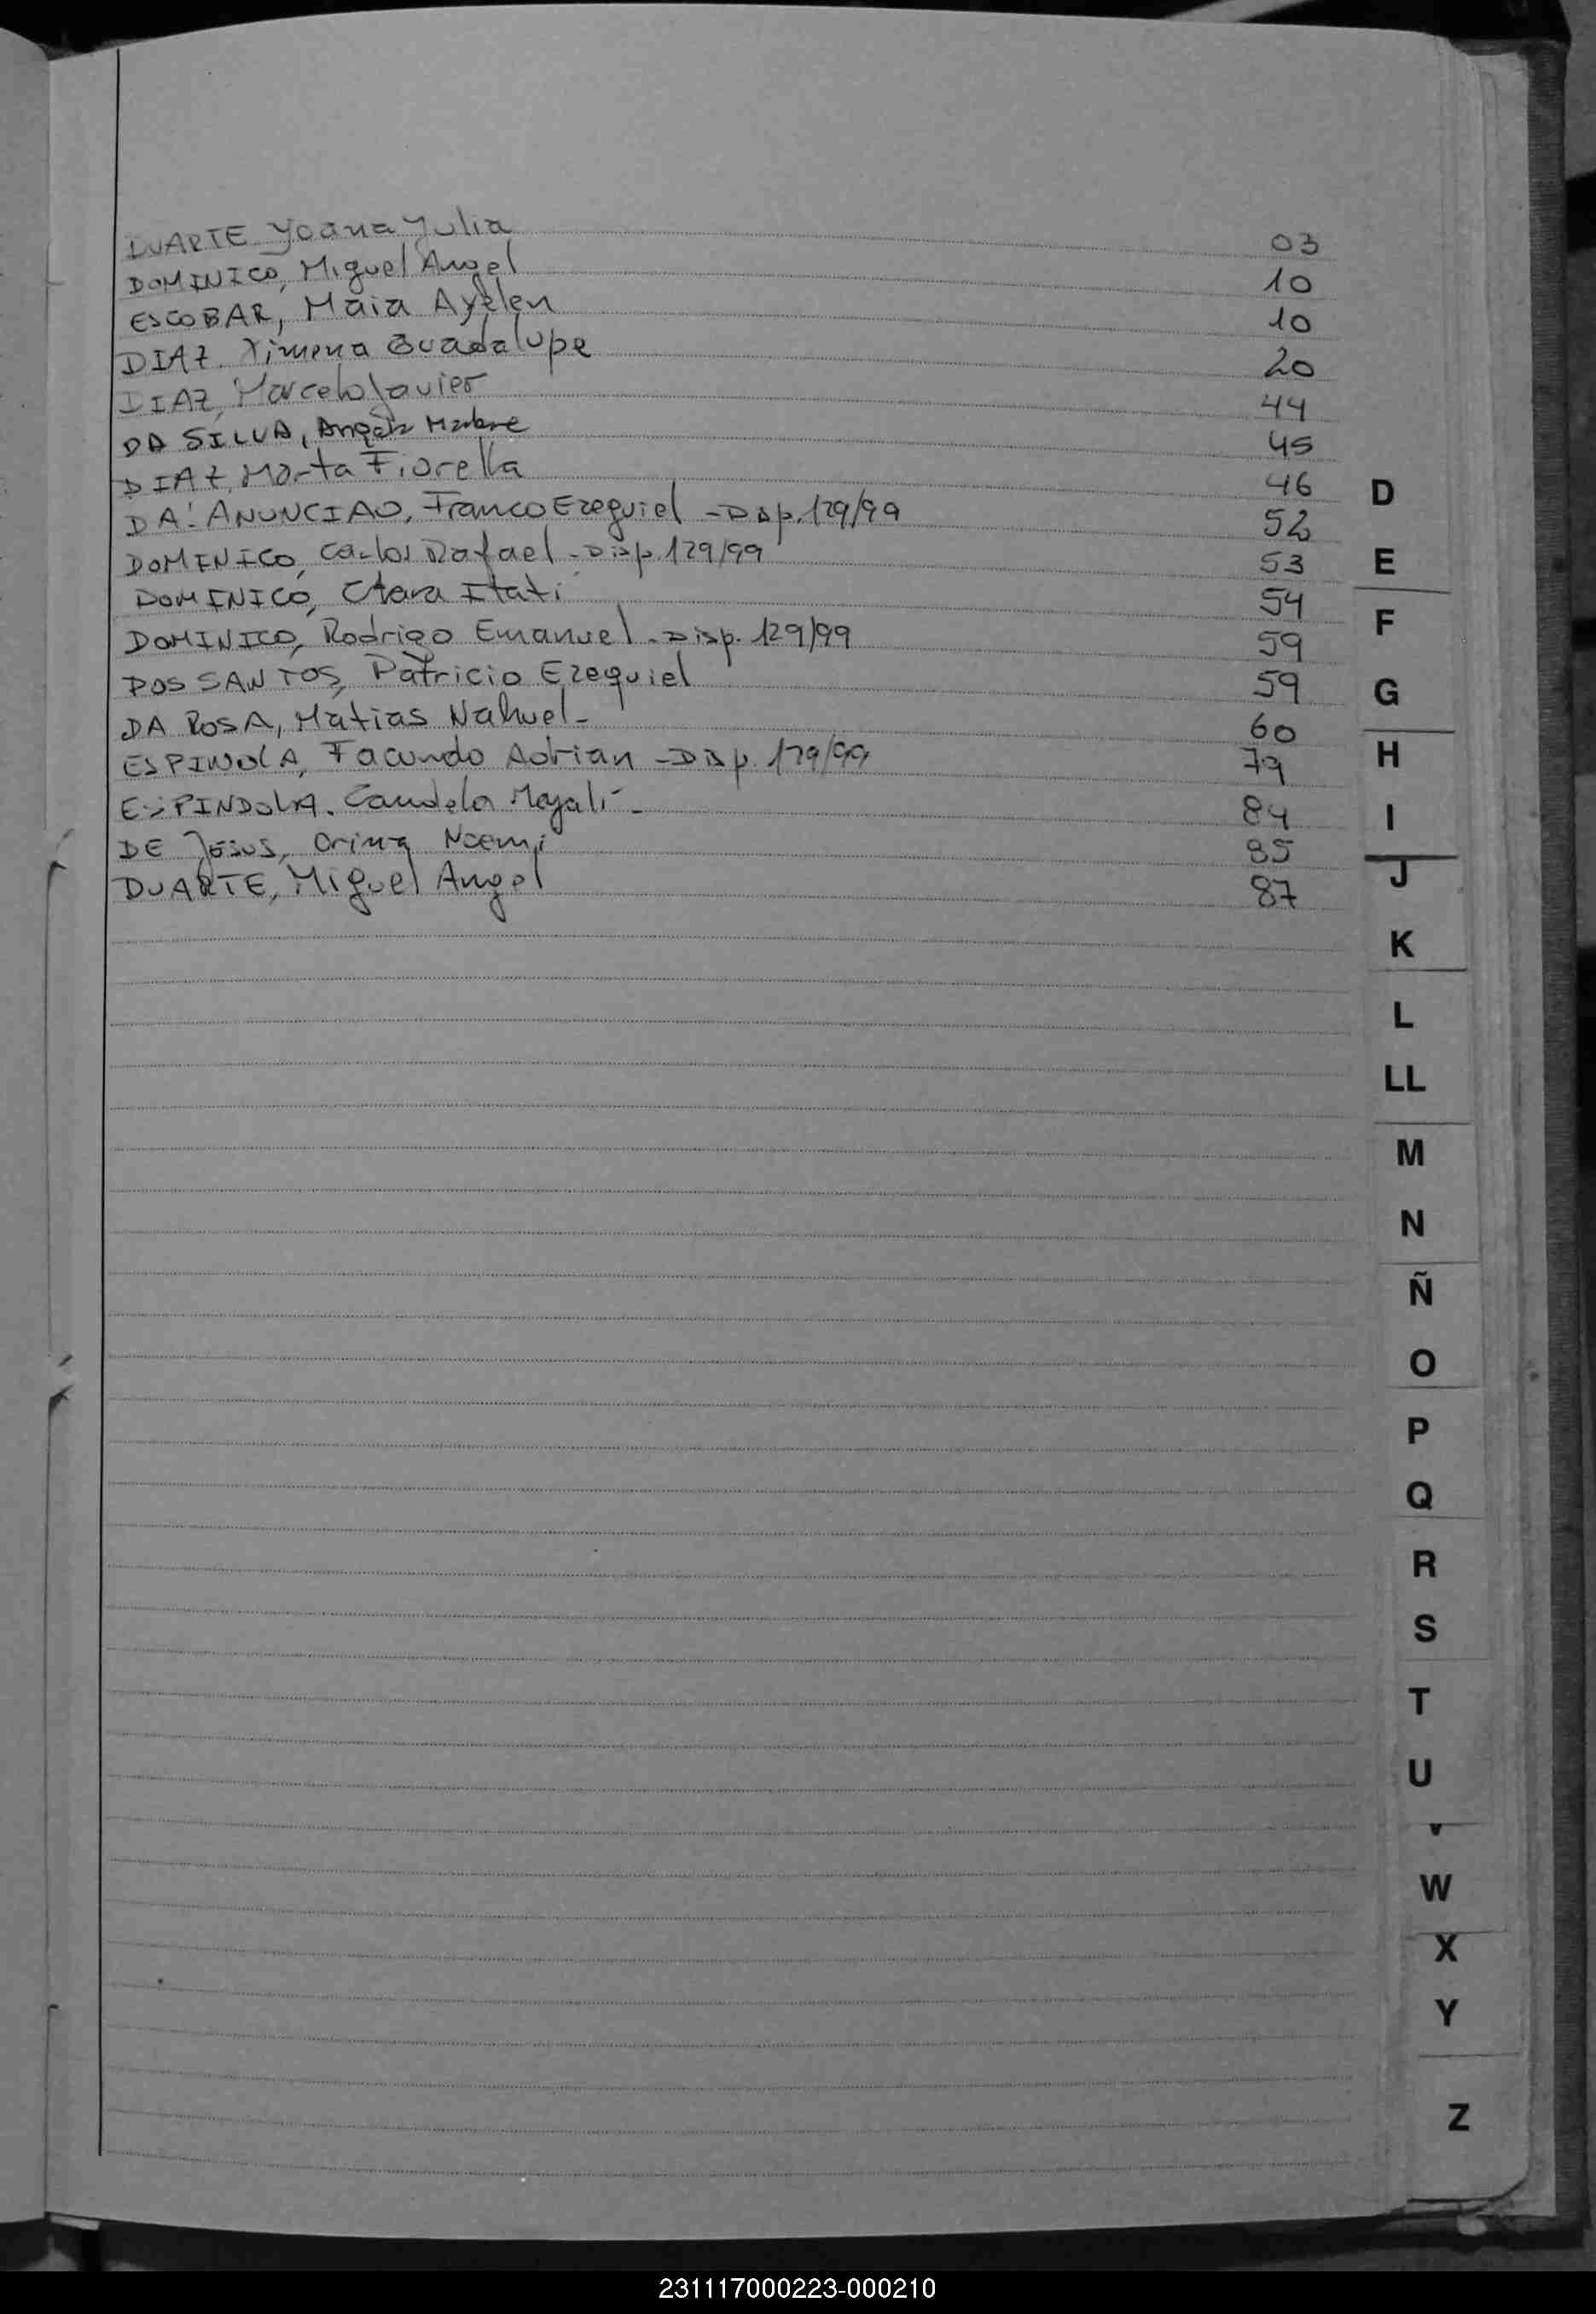 DUARTE Yoana Julia 03
DOMINICO, Miguel Angel 10
ESCOBAR, Maia Ayelen 10
DIAZ. Ximena Guadalupe 20
DIAZ, Marcelo Javier 44
DA SILVA, 45
DIAZ, Marta Fiorella 46
DA'ANUNCIAO, Franco Ezequiel - Disp. 129/99 52
DOMINICO, Carlos Rafael - Disp. 129/99 53
DOMINICO, Clara Itati 54
DOMINICO, Rodrigo Emanuel - Disp. 129/99 59
DOS SANTOS, Patricio Ezequiel 59
DA ROSA, Matias Nahuel - 60
ESPINOLA, Facundo Adrian - Disp. 129/99 79
ESPINDOLA. Candela Magali - 84
DE JESUS, Noemi 85
DUARTE, Miguel Angel 87
D
E
F
G
H
I
J
K
L
LL
M
N
Ñ
O
P
Q
R
S
T
U
V
W
X
Y
Z
231117000223-000210